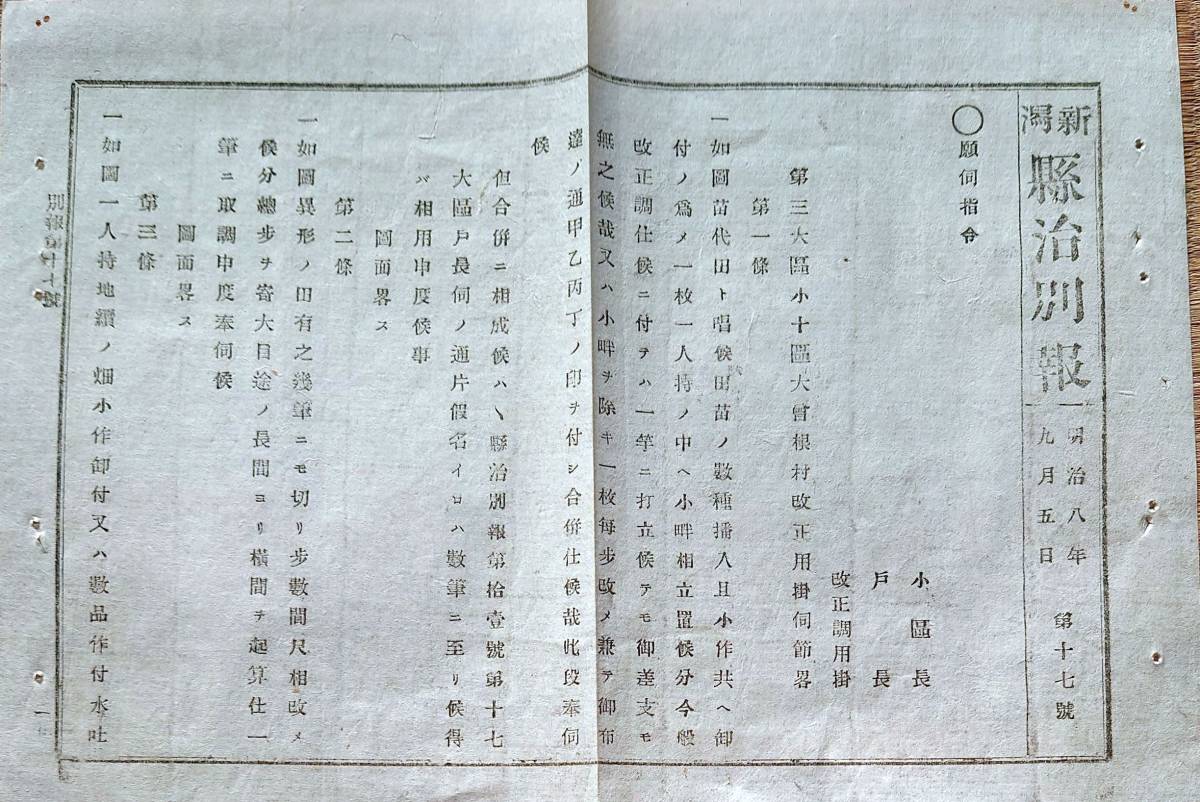 新潟縣治別報
明治八年
九月五日
第十七號
◯願伺指令
小區長
戸長
改正調用掛
第三大區小十區大曾根村改正用掛伺節畧
第一條
一如圖苗代田ト唱候田苗ノ數種播入且小作共ヘ卸
付ノ爲メ一枚一人持ノ中ヘ小畔相立置候分今般
改正調仕候ニ付テハ一竿ニ打立候テモ御差支モ
無之候哉又ハ小畔ヲ除キ一枚毎歩改メ兼テ御布
達ノ通甲乙丙丁ノ印ヲ付シ合併仕候哉此段奉伺
候
但合併ニ相成候ハヽ縣治別報第拾壹號第十七
大區戸長伺ノ通片假名イロハ數筆ニ至リ候得
バ相用申度候事
圖面畧ス
第二條
一如圖異形ノ田有之幾筆ニモ切リ歩數間尺相改メ
候分總歩ヲ寄大目途ノ長間ヨリ横間ヲ起算仕一
筆ニ取調申度奉伺候
圖面畧ス
第三條
一如圖一人持地續ノ畑小作卸付又ハ數品作付水吐
別報第十七號
一